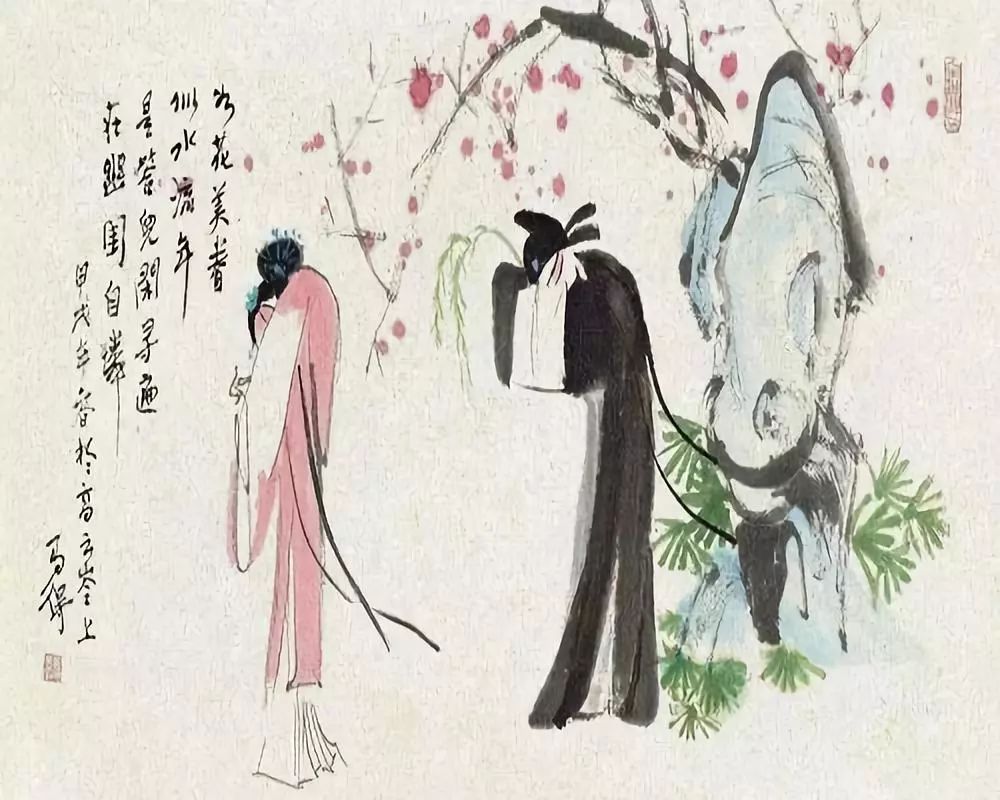 如花美眷
似水流年
是答兒閑尋遍
在幽閨自憐
甲戌年於高上
馬得